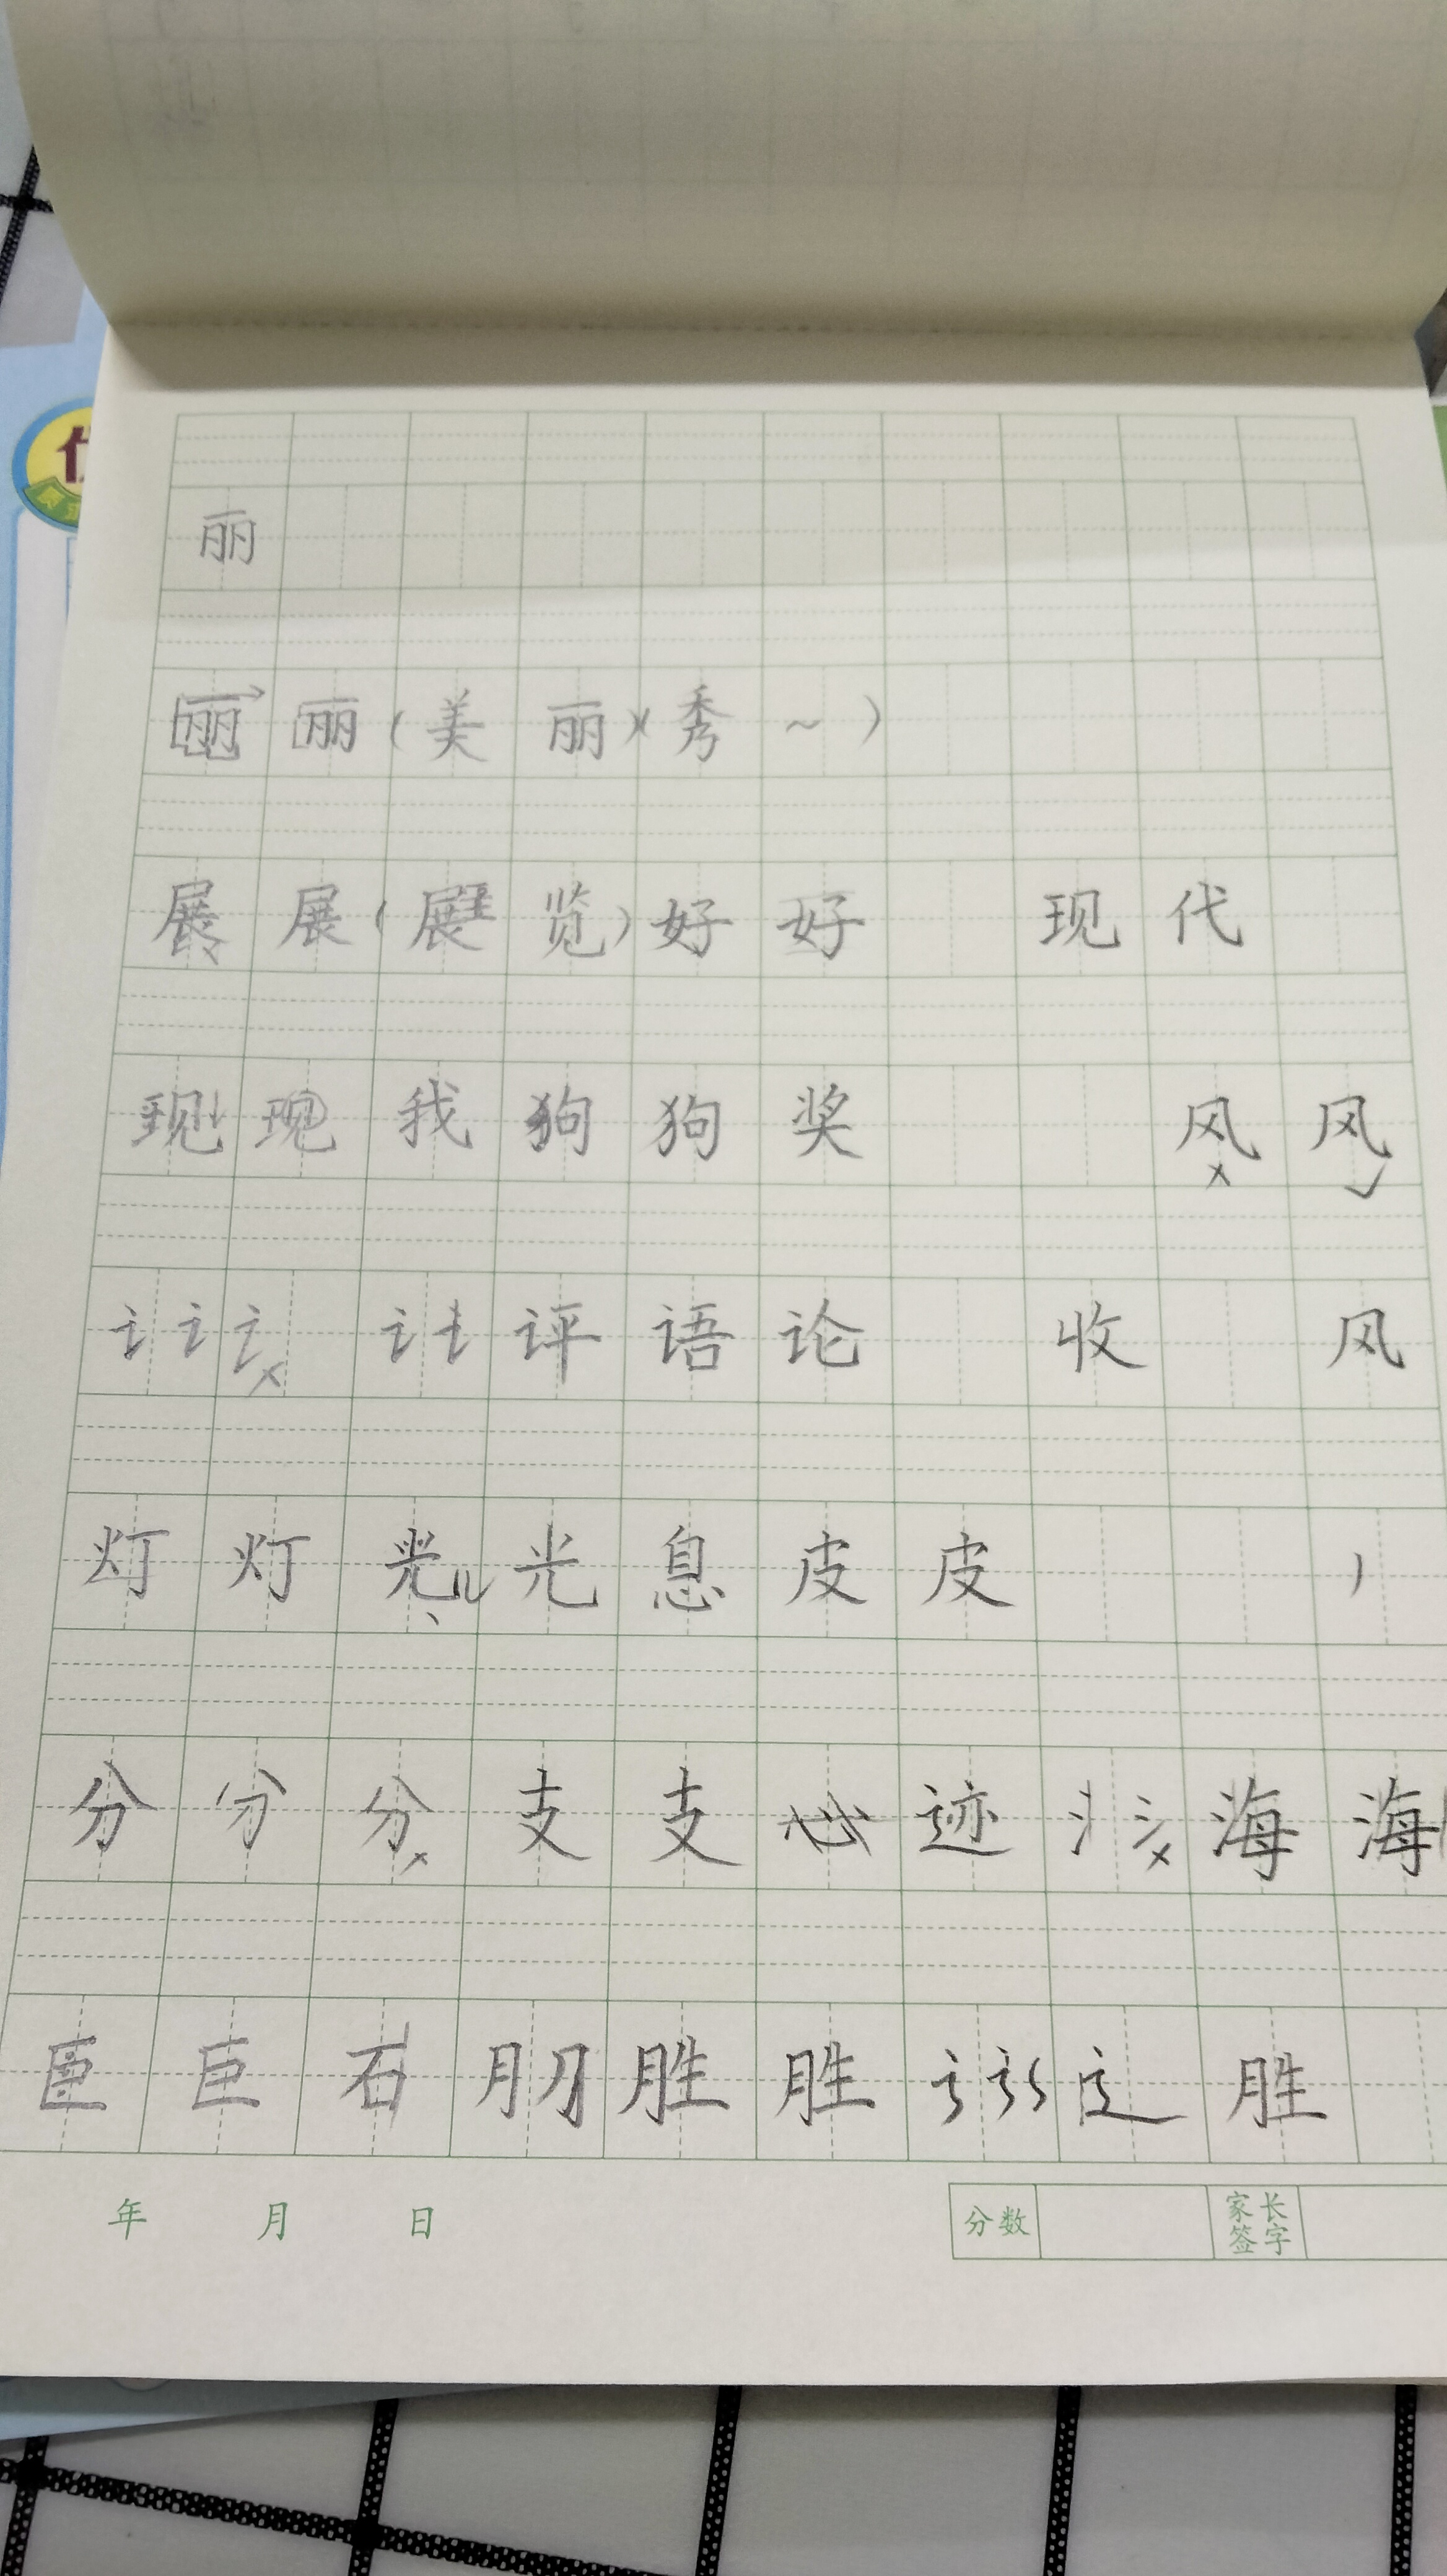 丽
丽 丽 (美 丽)(秀 ~)
展 展 (展 览) 好 好 现 代
现 现 我 狗 狗 奖 风 风
讠 讠 讠 讠 评 语 论 收 风
灯 灯 光 儿 光 息 皮 皮
分 分 分 支 支 心 迹 氵 氵 海 海
臣 巨 石 月 刀 胜 胜 讠 讠 辶 胜
年 月 日 分数 家长签字